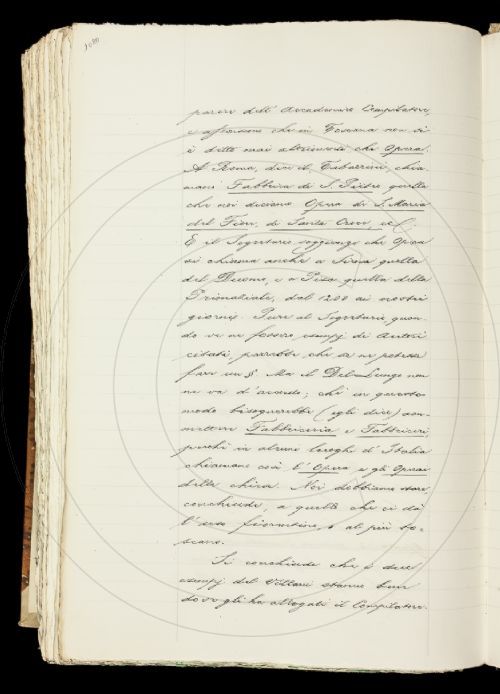 parere dell' Accademico Compilatore,
e afferma che in Toscana non si
è detto mai altrimenti che Opera.
A Roma, dice il Tabarrini, chia-
mano Fabbrica di S. Pietro quella
che noi diciamo Opera di S. Maria
del Fiore, di Santa Croce, ec.
E il Segretario soggiunge che Opera
si chiama anche a Siena quella
del Duomo, e a Pisa quella della
Primaziale, dal 1200 ai nostri
giorni. Pure al Segretario, quan-
do ve ne fossero esempj di Autori
citati, parrebbe che se ne potesse
fare un §. Ma il Del-Lungo non
ne va d'accordo; chè in questo
modo bisognerebbe (egli dice) am-
mettere Fabbriceria e Fabbricieri,
perchè in alcuni luoghi d'Italia
chiamano così l'Opera e gli Operai
della chiesa. Noi dobbiamo stare,
conchiude, a quello che ci dà
l'uso fiorentino, o al più to-
scano.
Si conchiude che i due
esempj del Villani stanno bene
dove gli ha allegati il Compilatore.